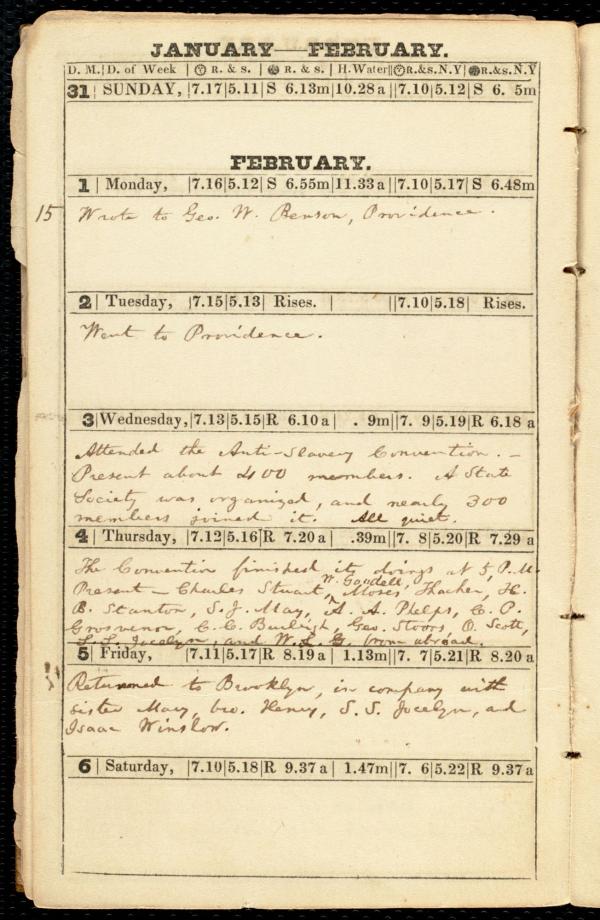 JANUARY—FEBRUARY.
D. M. | D. of Week | R. & s. | R. & s. | H. Water || R.&s. N.Y | R.&s. N.Y
31 | SUNDAY, | 7.17 | 5.11 | S 6.13m | 10.28 a || 7.10 | 5.12 | S 6. 5m
FEBRUARY.
1 | Monday, | 7.16 | 5.12 | S 6.55m | 11.33 a || 7.10 | 5.17 | S 6.48m
15 Wrote to Geo. W. Benson, Providence.
2 | Tuesday, | 7.15 | 5.13 | Rises. | || 7.10 | 5.18 | Rises.
Went to Providence.
3 | Wednesday, | 7.13 | 5.15 | R 6.10 a | . 9m || 7. 9 | 5.19 | R 6.18 a
Attended the Anti-Slavery Convention. –
Present about 400 members. A State
Society was organized, and nearly 300
members joined it. All quiet.
4 | Thursday, | 7.12 | 5.16 | R 7.20 a | .39m || 7. 8 | 5.20 | R 7.29 a
The Convention finished its doings at 5, P.M.
Present – Charles Stuart, W. Goodell, Moses Thacher, H.
B. Stanton, S. J. May, A. A. Phelps, C. P.
Grosvenor, C. C. Burleigh, Geo. Storrs, O. Scott,
S. S. Jocelyn, and W. L. G. from abroad.
5 | Friday, | 7.11 | 5.17 | R 8.19 a | 1.13m || 7. 7 | 5.21 | R 8.20 a
Returned to Brooklyn, in company with
sister Mary, bro. Henry, S. S. Jocelyn, and
Isaac Winslow.
6 | Saturday, | 7.10 | 5.18 | R 9.37 a | 1.47m || 7. 6 | 5.22 | R 9.37 a